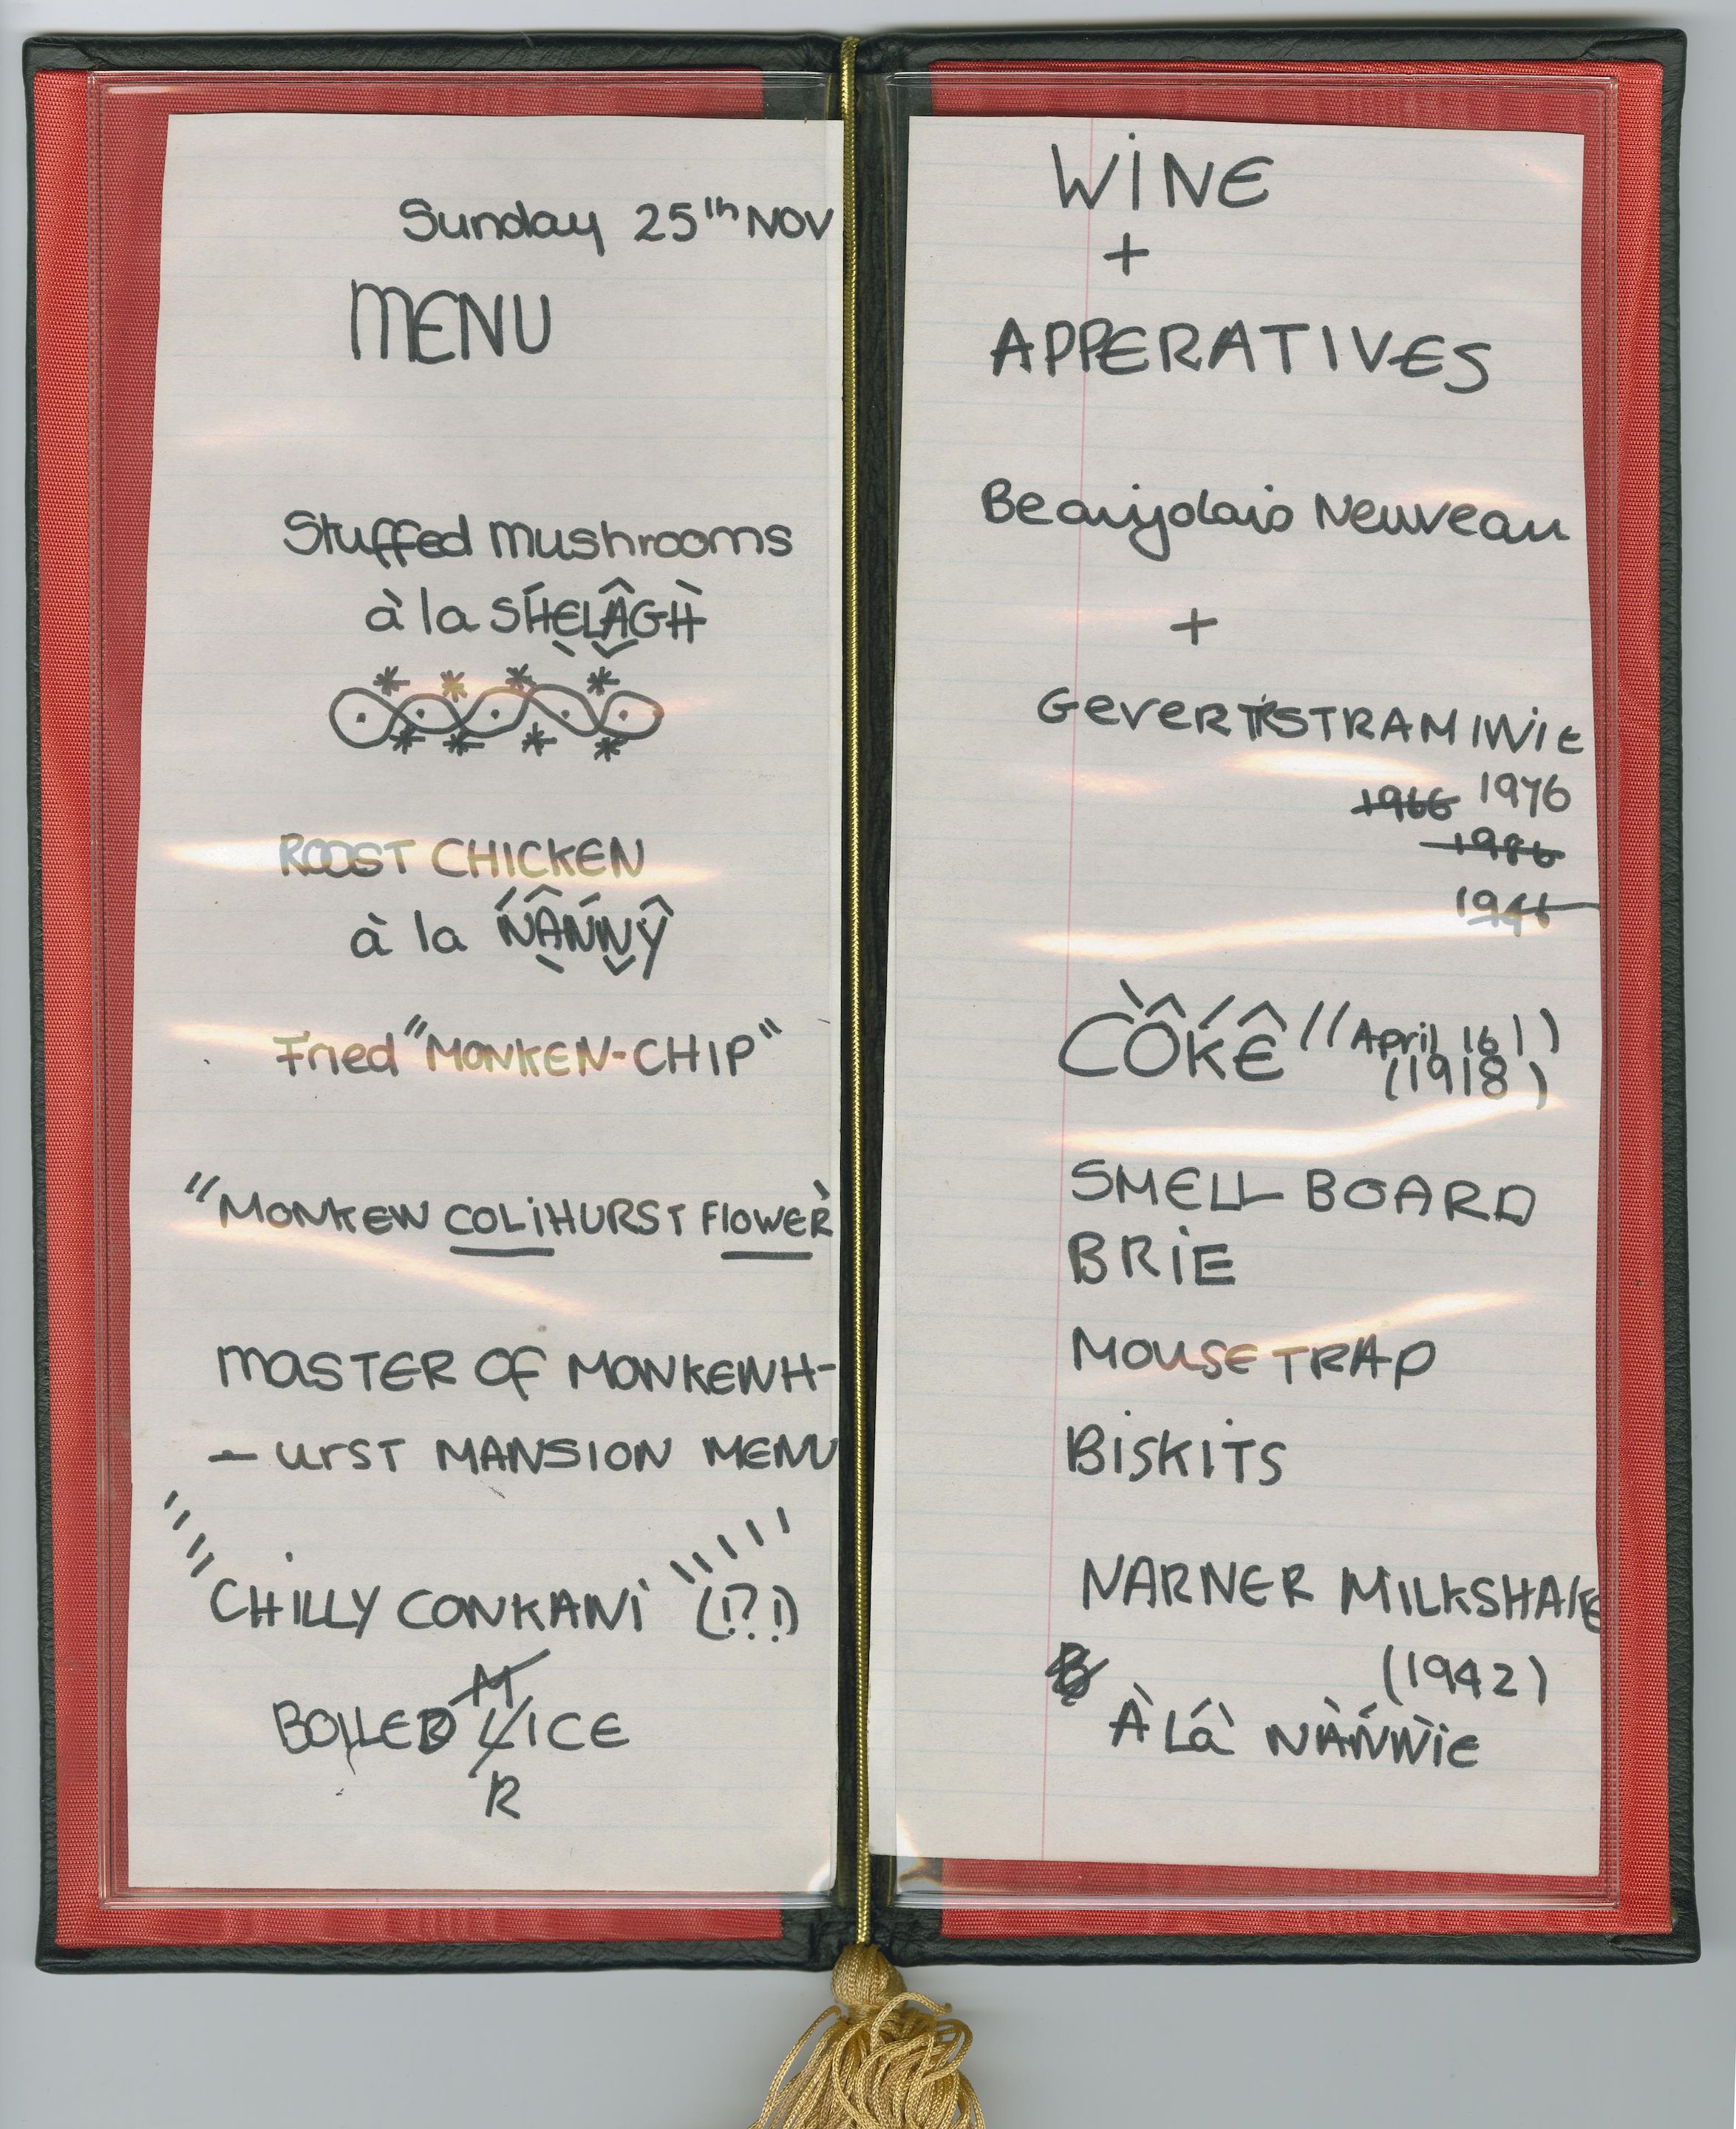 Sunday 25th NOV
MENU
Stuffed mushrooms
à la SHELÂGH
ROOST CHICKEN
à la ŃÂŃNŶ
Fried "MONKEN-CHIP"
"MONKEN COLiHURST FlOWER
MASTER OF MONKENH-
- URST MANSION MENU
CHILLY CONKANi (!?!)
M
BOILED LICE
R
WiNE
+
APPERATIVES
Beaujolais Neuveau
+
GeverTKSTRAMINIe
1966 1976
1986
1946
CÒKÊ ((April 16))
(1918)
SMELL BOARD
BRiE
MOUSE TRAP
BiSKiTS
NARNER MILKSHAKE
(1942)
À Lá NÀŃNie